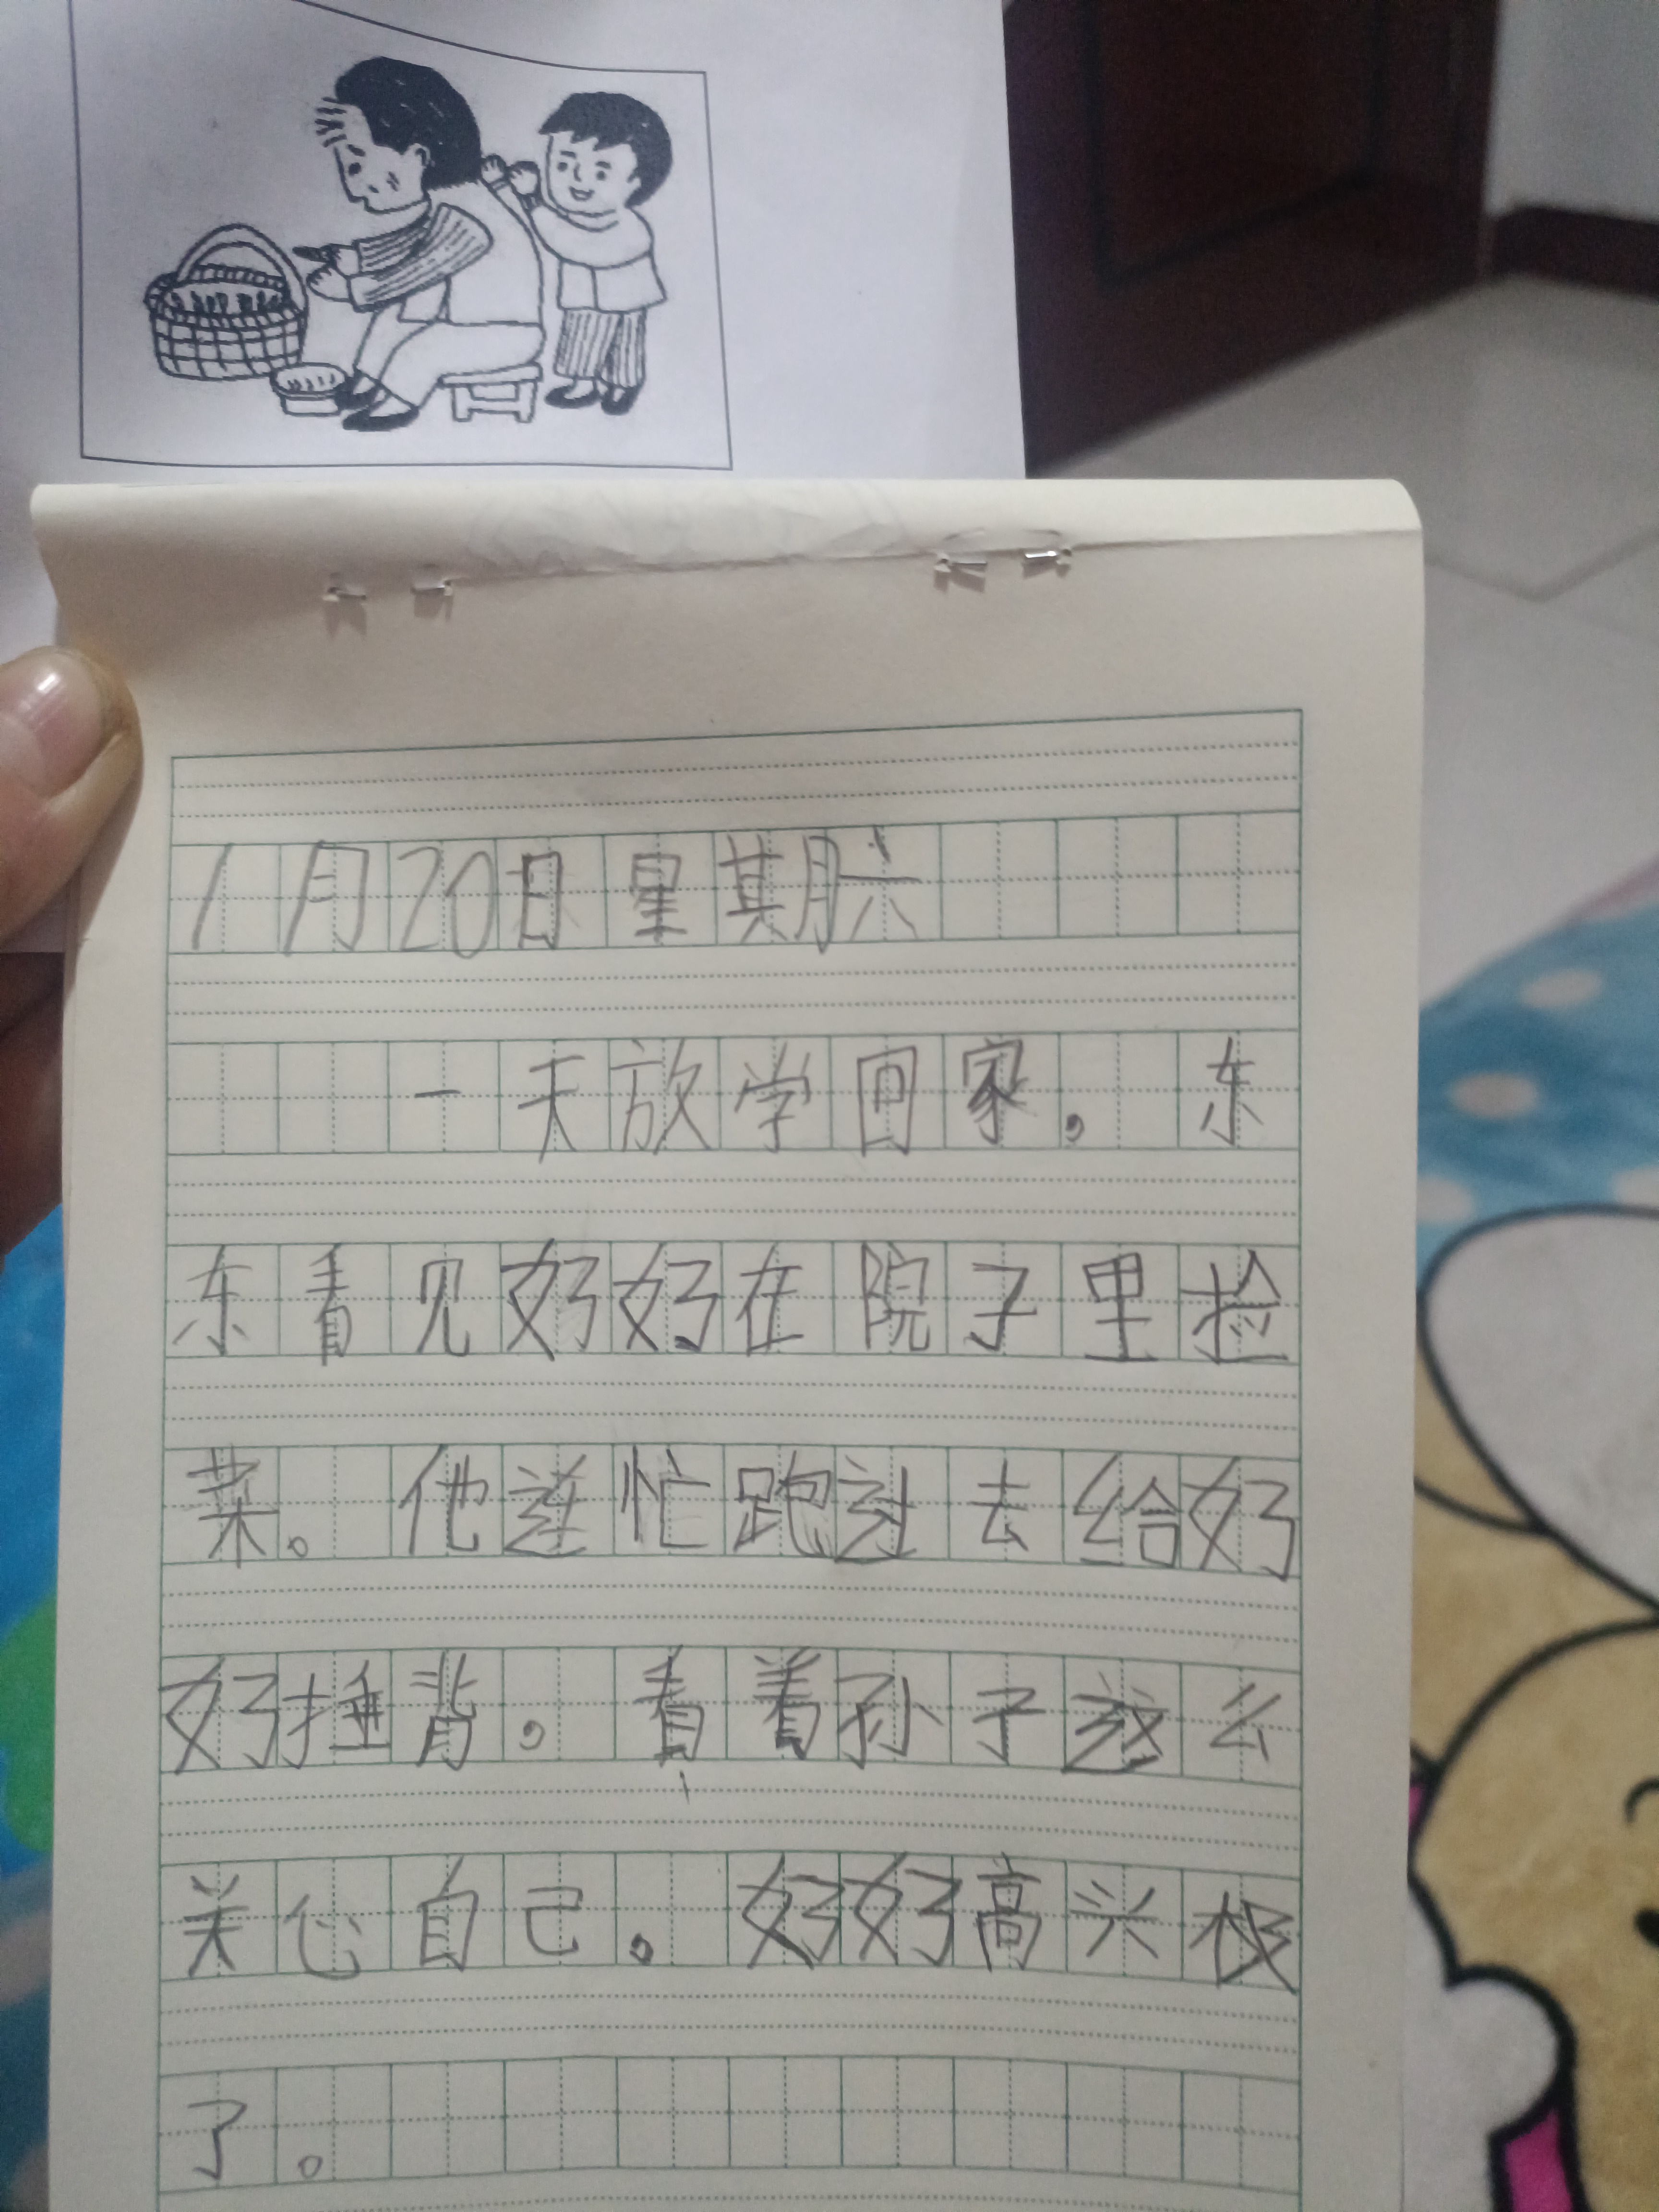 1月20日星期六
一天放学回家，东
东看见好好在院子里捡
菜。他连忙跑过去给好
好捶背，看着孙子这么
关心自己。好好高兴极
了。